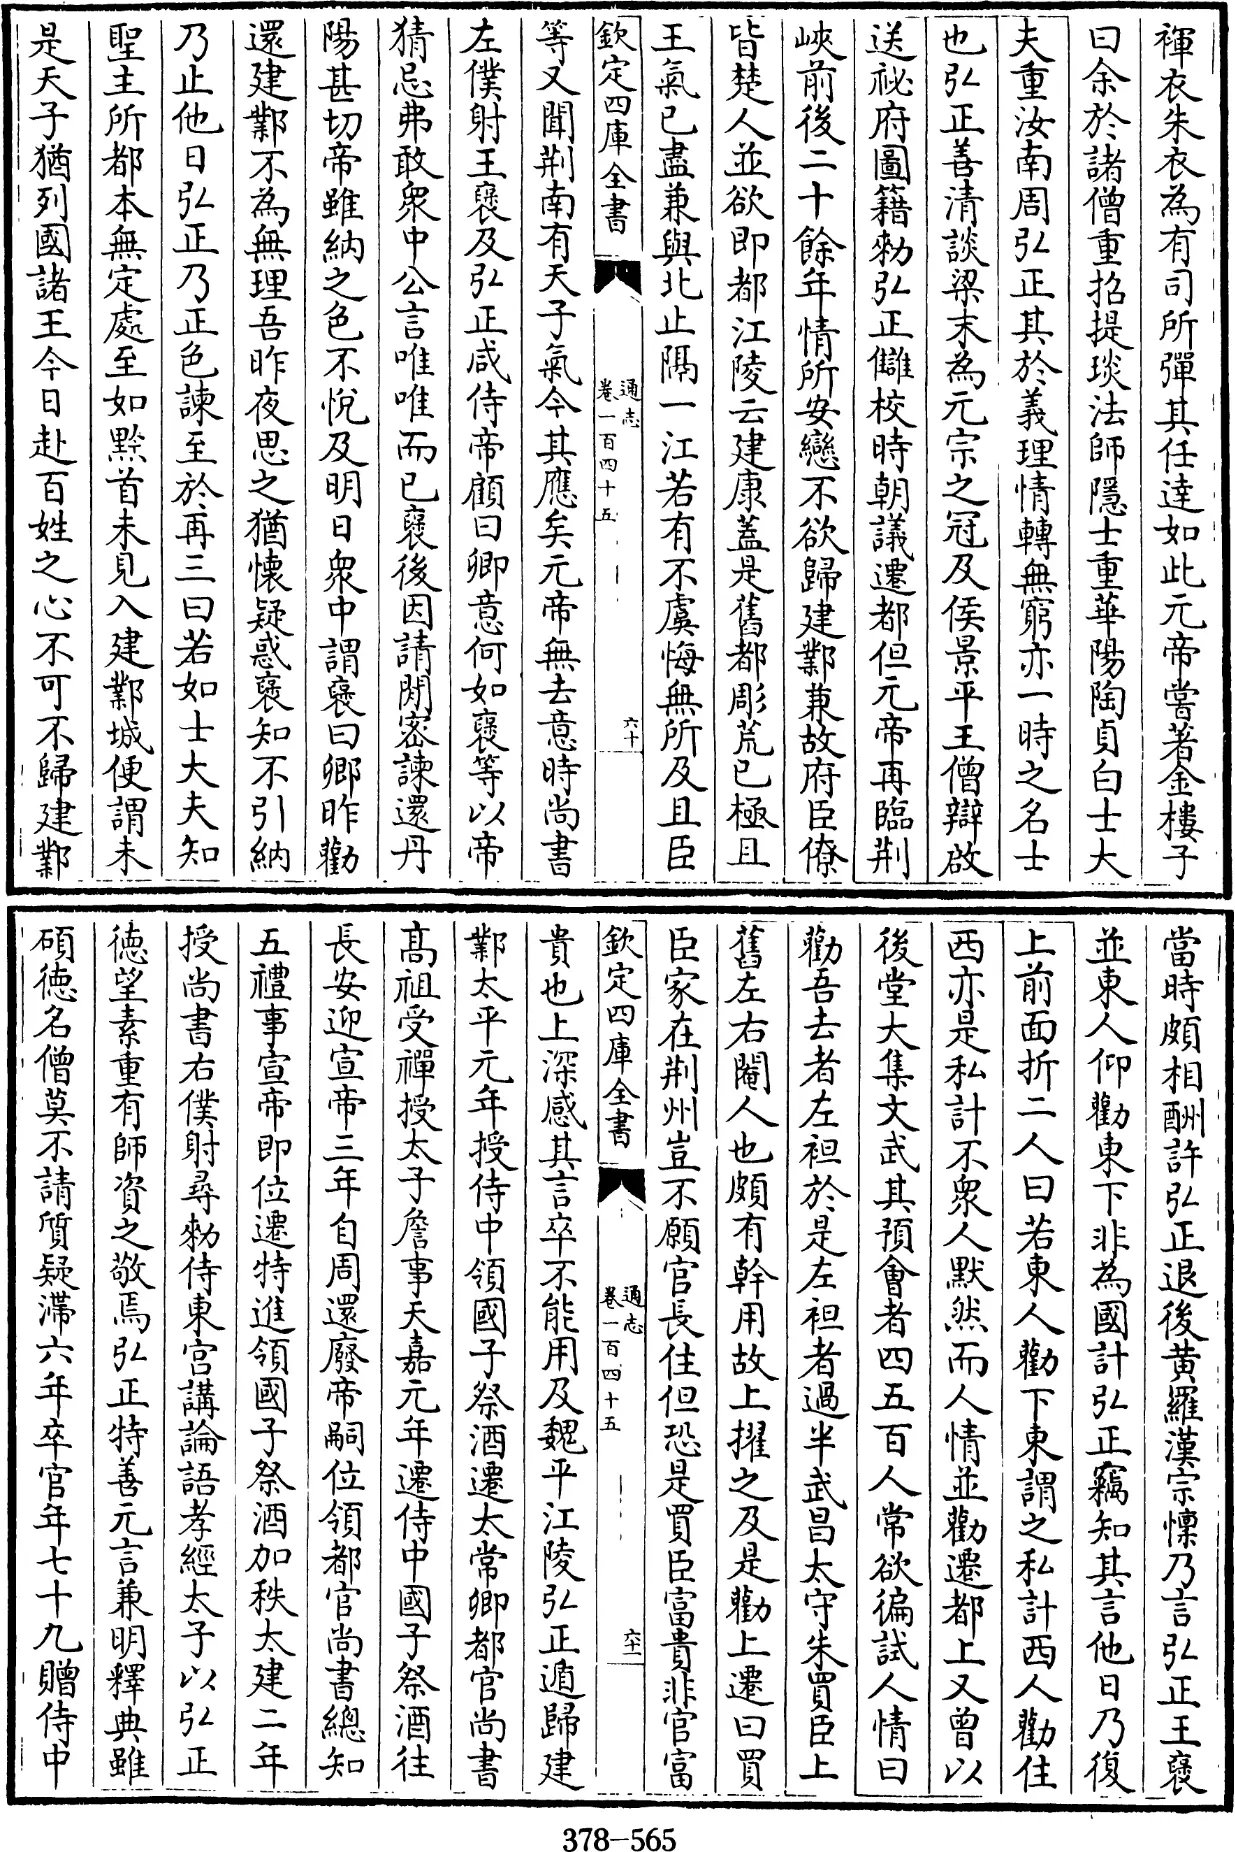 褌衣朱衣為有司所彈其任達如此元帝嘗著金樓子
曰余於諸僧重招提琰法師隱士重華陽陶貞白士大
夫重汝南周弘正其於義理情轉無窮亦一時之名士
也弘正善清談梁末為元宗之冠及侯景平王僧辯啟
送祕府圖籍勑弘正讎校時朝議遷都但元帝再臨荆
峽前後二十餘年情所安戀不欲歸建鄴兼故府臣僚
皆楚人並欲即都江陵云建康蓋是舊都彫荒已極且
王氣已盡兼與北止隔一江若有不虞悔無所及且臣
欽定四庫全書
通志
卷一百四十五
六十
等又聞荆南有天子氣今其應矣元帝無去意時尚書
左僕射王襃及弘正咸侍帝顧曰卿意何如襃等以帝
猜忌弗敢衆中公言唯唯而已襃後因請閒密諫還丹
陽甚切帝雖納之色不悅及明日衆中謂襃曰卿昨勸
還建鄴不為無理吾昨夜思之猶懷疑惑襃知不引納
乃止他日弘正乃正色諫至於再三曰若如士大夫知
聖主所都本無定處至如黙首未見入建鄴城便謂未
是天子猶列國諸王今日赴百姓之心不可不歸建鄴
當時頗相酬許弘正退後黄羅漢宗懍乃言弘正王襃
並東人仰勸東下非為國計弘正竊知其言他日乃復
上前面折二人曰若東人勸下東謂之私計西人勸住
西亦是私計不衆人默然而人情並勸遷都上又曾以
後堂大集文武其預會者四五百人常欲徧試人情曰
勸吾去者左袒於是左袒者過半武昌太守朱買臣上
舊左右閹人也頗有幹用故上擢之及是勸上遷曰買
臣家在荆州豈不願官長住但恐是買臣富貴非官富
欽定四庫全書
通志
卷一百四十五
六十一
貴也上深感其言卒不能用及魏平江陵弘正遁歸建
鄴太平元年授侍中領國子祭酒遷太常卿都官尚書
髙祖受禪授太子詹事天嘉元年遷侍中國子祭酒往
長安迎宣帝三年自周還廢帝嗣位領都官尚書總知
五禮事宣帝即位遷特進領國子祭酒加秩太建二年
授尚書右僕射尋勑侍東宮講論語孝經太子以弘正
德望素重有師資之敬焉弘正特善元言兼明釋典雖
碩德名僧莫不請質疑滯六年卒官年七十九贈侍中
378-565